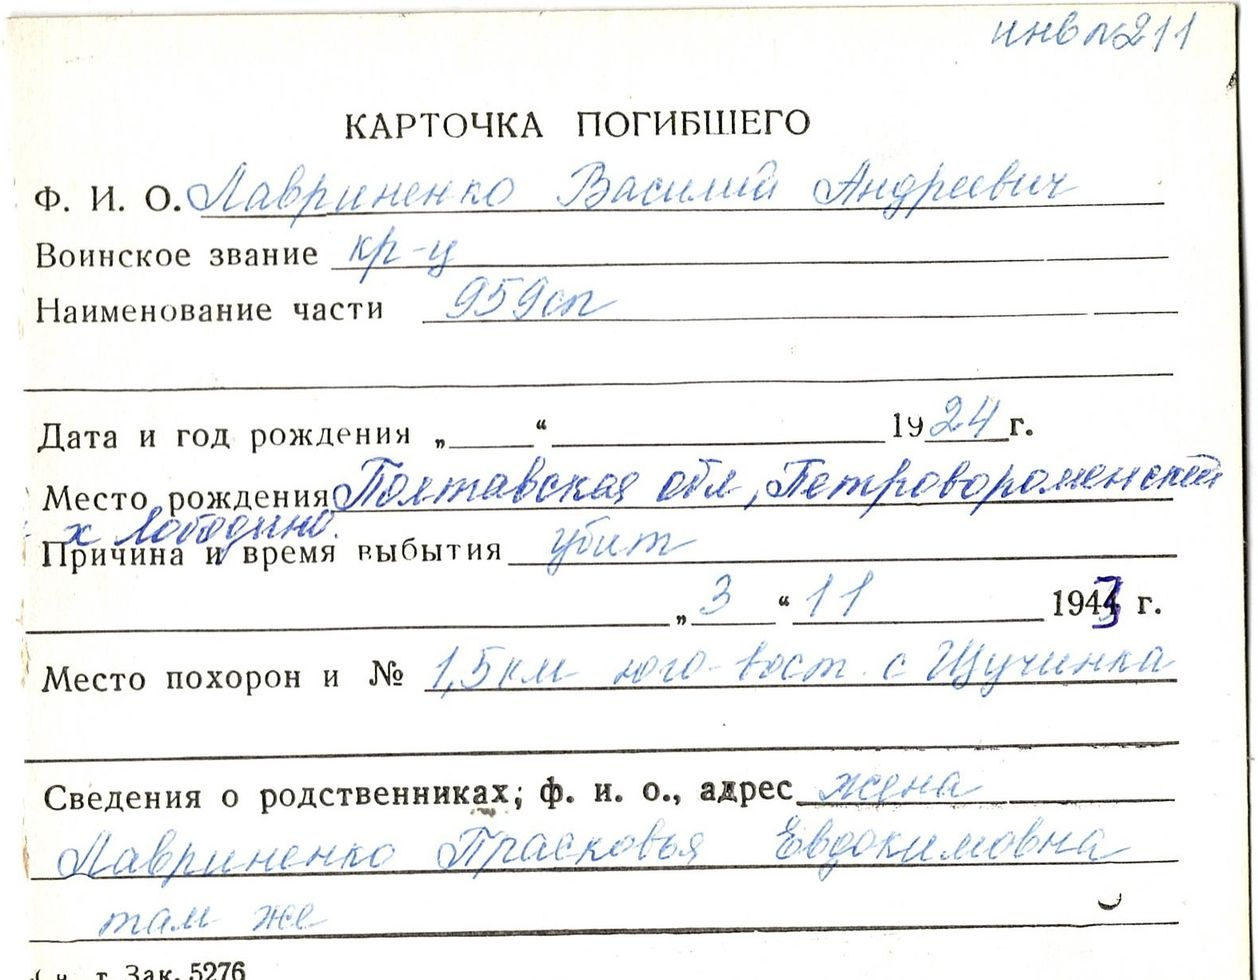 инв №211
КАРТОЧКА ПОГИБШЕГО
Ф. И. О. Лавриненко Василий Андреевич
Воинское звание кр-ц
Наименование части 959сп
Дата и год рождения „ “ 1924 г.
Место рождения Полтавская обл, Петровороменский
х Лободино.
Причина и время выбытия убит
„ 3 “ 11 1943 г.
Место похорон и № 1,5км юго-вост. с Щучинка
Сведения о родственниках; ф. и. о., адрес жена
Лавриненко Прасковья Евдокимовна
там же
т. Зак. 5276